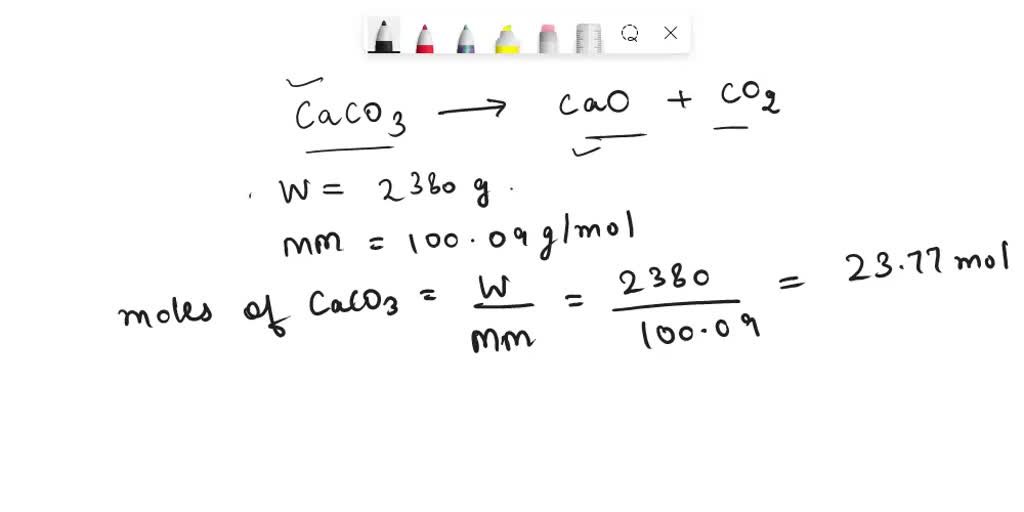 CaCO3 → CaO + CO2
W = 2380 g.
mm = 100.09 g/mol
moles of CaCO3 = W/mm = 2380/100.09 = 23.77 mol